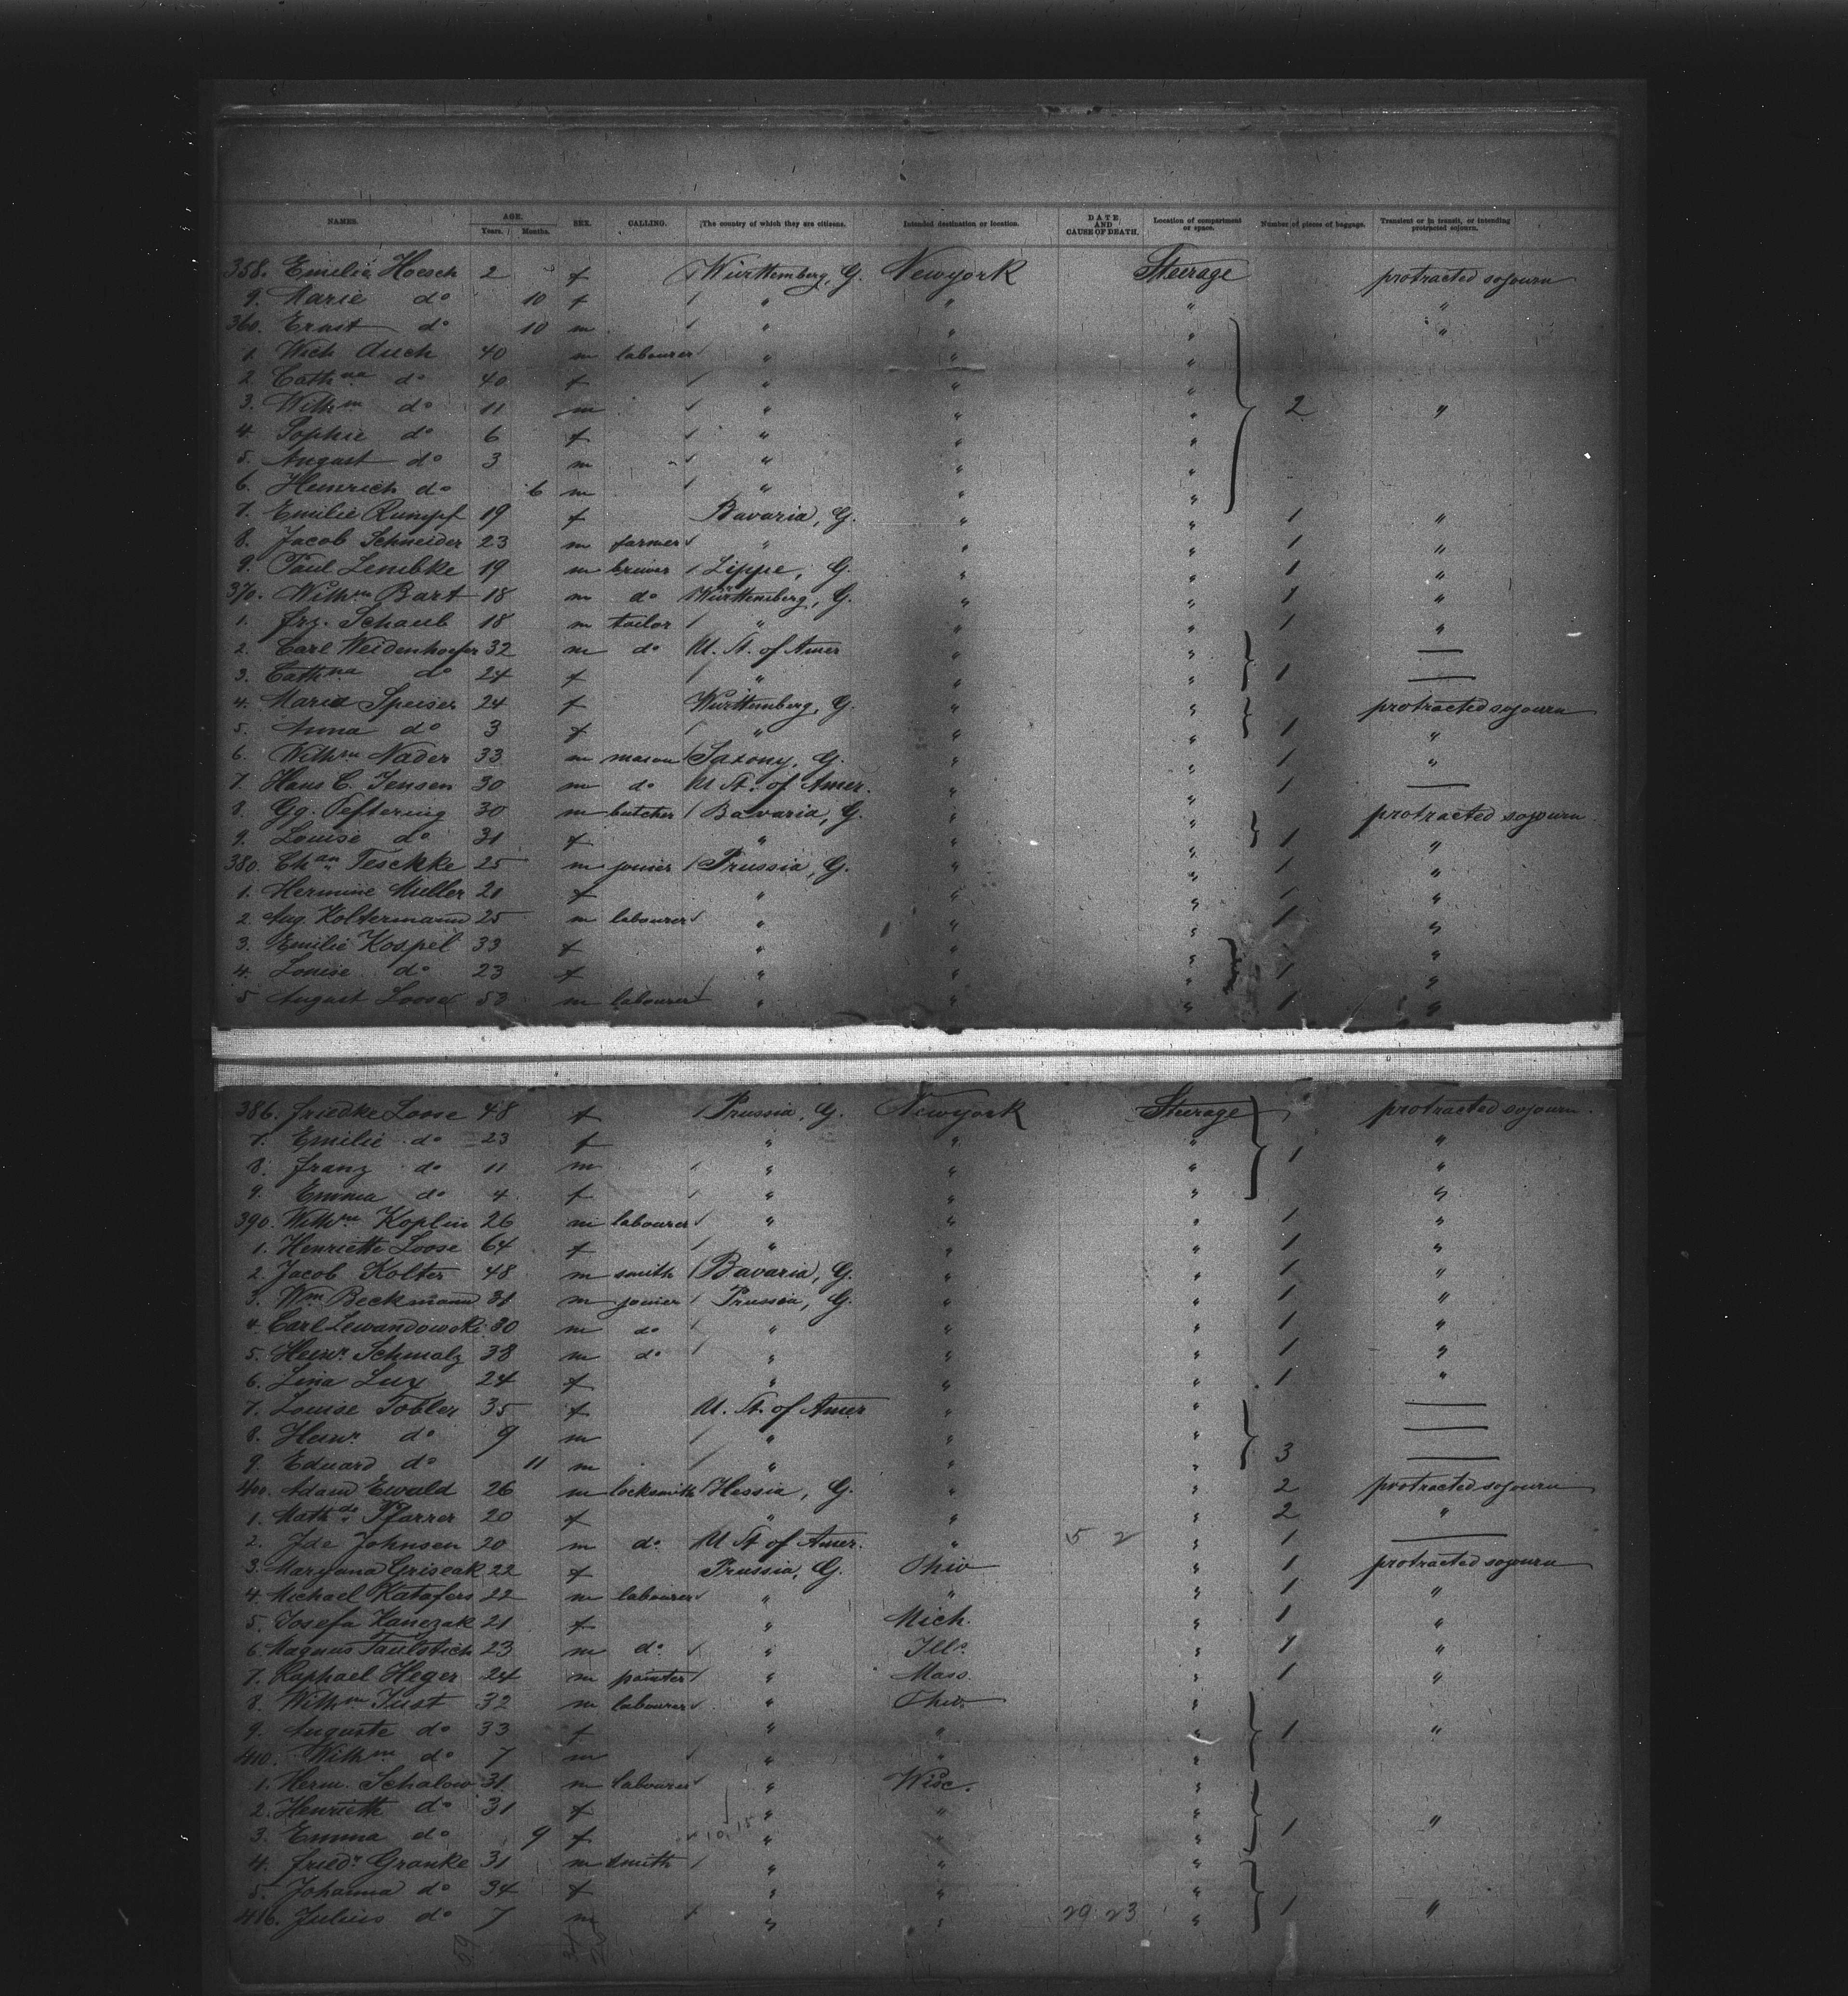 NAMES. AGE. Years. Months. SEX. CALLING. The country of which they are citizens. Intended destination or location. DATE AND CAUSE OF DEATH. Location of compartment or space. Number of pieces of baggage. Transient or in transit, or intending protracted sojourn.
358. Emilia Hoesch 2 f Württemberg, G. Newyork Steerage protracted sojourn
9. Marie do 10 f " " " "
360. Ernst do 10 m " " " "
1. Mich Auch 40 m labourer " " "
2. Cathna do 40 f " " "
3. Wilhm do 11 m " " " 2 "
4. Sophie do 6 f " " "
5. August do 3 m " " "
6. Heinrich do 6 m " " "
7. Emilie Rumpf 19 f Bavaria, G. " " 1 "
8. Jacob Schneider 23 m farmer " " " 1 "
9. Paul Lembke 19 m brewer Lippe, G. " " 1 "
370. Wilhm Bart 18 m do Württemberg, G. " " 1 "
1. Frz. Schaub 18 m tailor " " " 1 "
2. Carl Weidenhoefer 32 m do U. St. of Amer " " —
3. Cathna do 24 f " " " 1 —
4. Maria Speiser 24 f Württemberg, G. " " protracted sojourn
5. Anna do 3 f " " " 1 "
6. Wilhm Nader 33 m mason Saxony, G. " " 1 "
7. Hans C. Jensen 30 m do U. St. of Amer. " " 1 —
8. Gg. Oeftering 30 m butcher Bavaria, G. " " protracted sojourn
9. Louise do 31 f " " " 1 "
380. Chan Teschke 25 m joiner Prussia, G. " " 1 "
1. Hermine Müller 21 f " " " 1 "
2. Aug. Koltermann 25 m labourer " " " 1 "
3. Emilie Kospel 33 f " " " "
4. Louise do 23 f " " " 1 "
5 August Loose 52 m labourer " " " 1 "
386. Friedke Loose 48 f Prussia, G. Newyork Steerage protracted sojourn
7. Emilie do 23 f " " " 1 "
8. Franz do 11 m " " " "
9. Emma do 4 f " " " "
390. Wilhm Koplin 26 m labourer " " " 1 "
1. Henriette Loose 64 f " " " 1 "
2. Jacob Kolter 48 m smith Bavaria, G. " " 1 "
3. Wm Beckmann 31 m joiner Prussia, G. " " 1 "
4. Carl Lewandowski 30 m do " " " 1 "
5. Heinr. Schmalz 38 m do " " " 1 "
6. Lina Lux 24 f " " " 1 "
7. Louise Tobler 35 f U. St. of Amer " " —
8. Heinr. do 9 m " " " —
9. Eduard do 11 m " " " 3 —
400. Adam Ewald 26 m locksmith Hessia, G. " " 2 protracted sojourn
1. Mathde Pfarrer 20 f " " " 2 "
2. Ide Johnsen 20 m do U. St. of Amer. " 5 2 " 1 —
3. Maryana Griseak 22 f Prussia, G. Ohio " 1 protracted sojourn
4. Michael Katafers 22 m labourer " " " 1 "
5. Josefa Kanezak 21 f " Mich. " 1 "
6. Magnus Faulstich 23 m do " Ills. " 1 "
7. Raphael Heger 24 m painter " Mass. " 1 "
8. Wilhm Just 32 m labourer " Ohio "
9. Auguste do 33 f " " " 1 "
410. Wilhm do 7 m " " "
1. Herm. Schalow 31 m labourer " Wisc. "
2. Henriette do 31 f " " " "
3. Emma do 9 f 10.15 " " " 1
4. Friedr Granke 31 m smith " " "
5. Johanna do 34 f " " "
416. Julius do 7 m " " 29 23 " 1 "
59